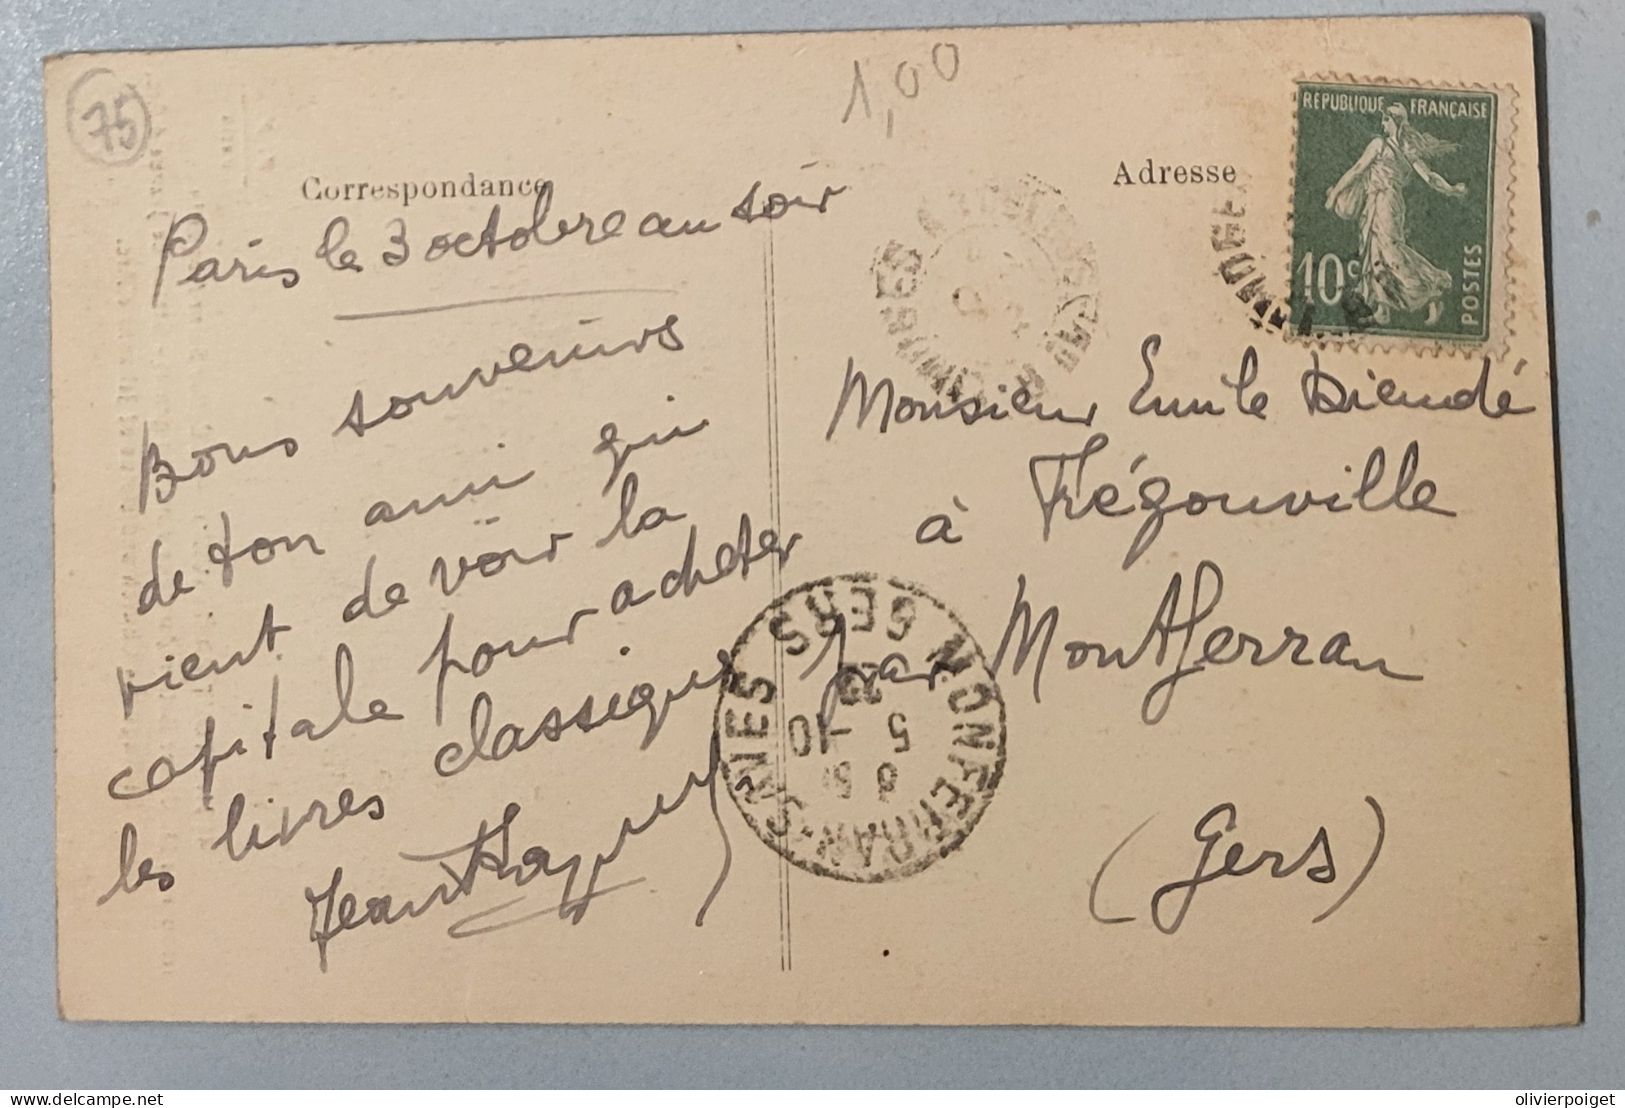 75
1,00
Correspondance
Adresse
RÉPUBLIQUE FRANÇAISE
10c
POSTES
Paris le 3 octobre au soir
Bons souvenirs
de ton ami qui
vient de voir la
capitale pour acheter
les livres classiques
Jean
Monsieur Emile Diendé
à Frégouville
par Montferran
(Gers)
MONFERRAN-SAVES GERS
5 -10
delcampe.net
olivierpoiget